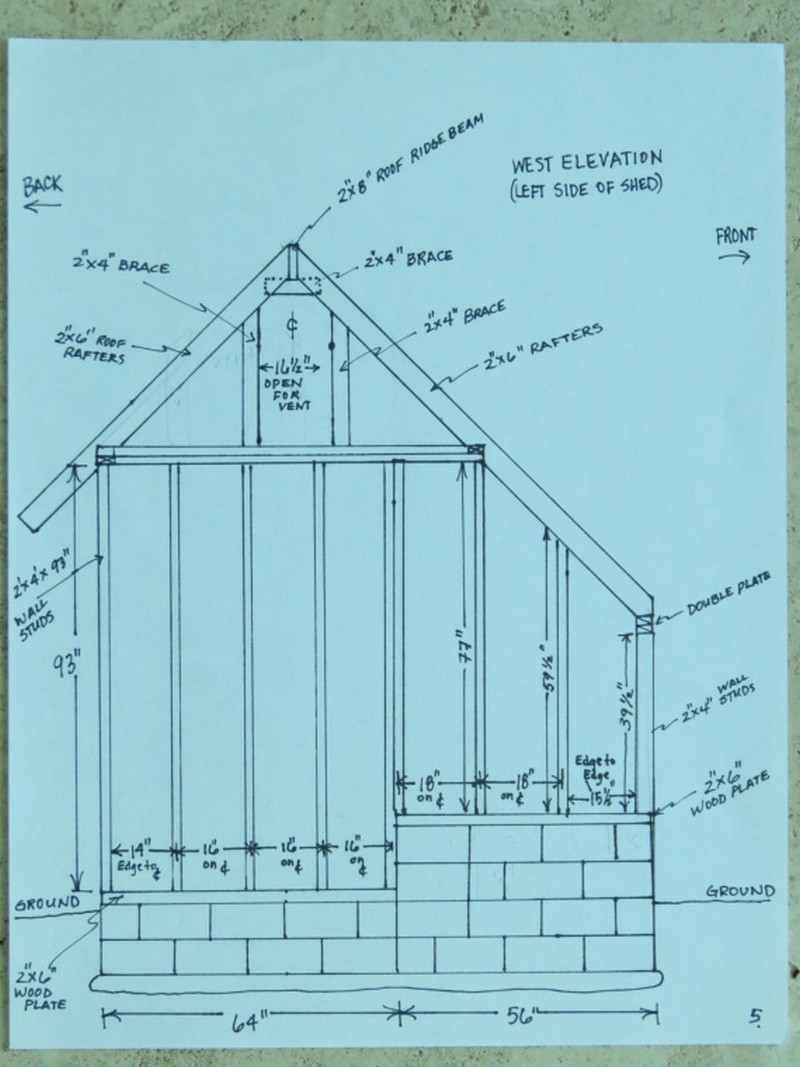 WEST ELEVATION
(LEFT SIDE OF SHED)
BACK
FRONT
2"x8" ROOF RIDGE BEAM
2"x4" BRACE
2"x4" BRACE
2"x4" BRACE
2"x6" ROOF
RAFTERS
2"x6" RAFTERS
℄
16½"
OPEN
FOR
VENT
2"x4"x93"
WALL
STUDS
93"
77"
59½"
39½"
DOUBLE PLATE
2"x4" WALL
STUDS
2"x6"
WOOD PLATE
18"
on ℄
18"
on ℄
Edge to
Edge
15½"
14"
Edge to ℄
16
on ℄
16"
on ℄
16"
on ℄
GROUND
GROUND
2"x6"
WOOD
PLATE
64"
56"
5.